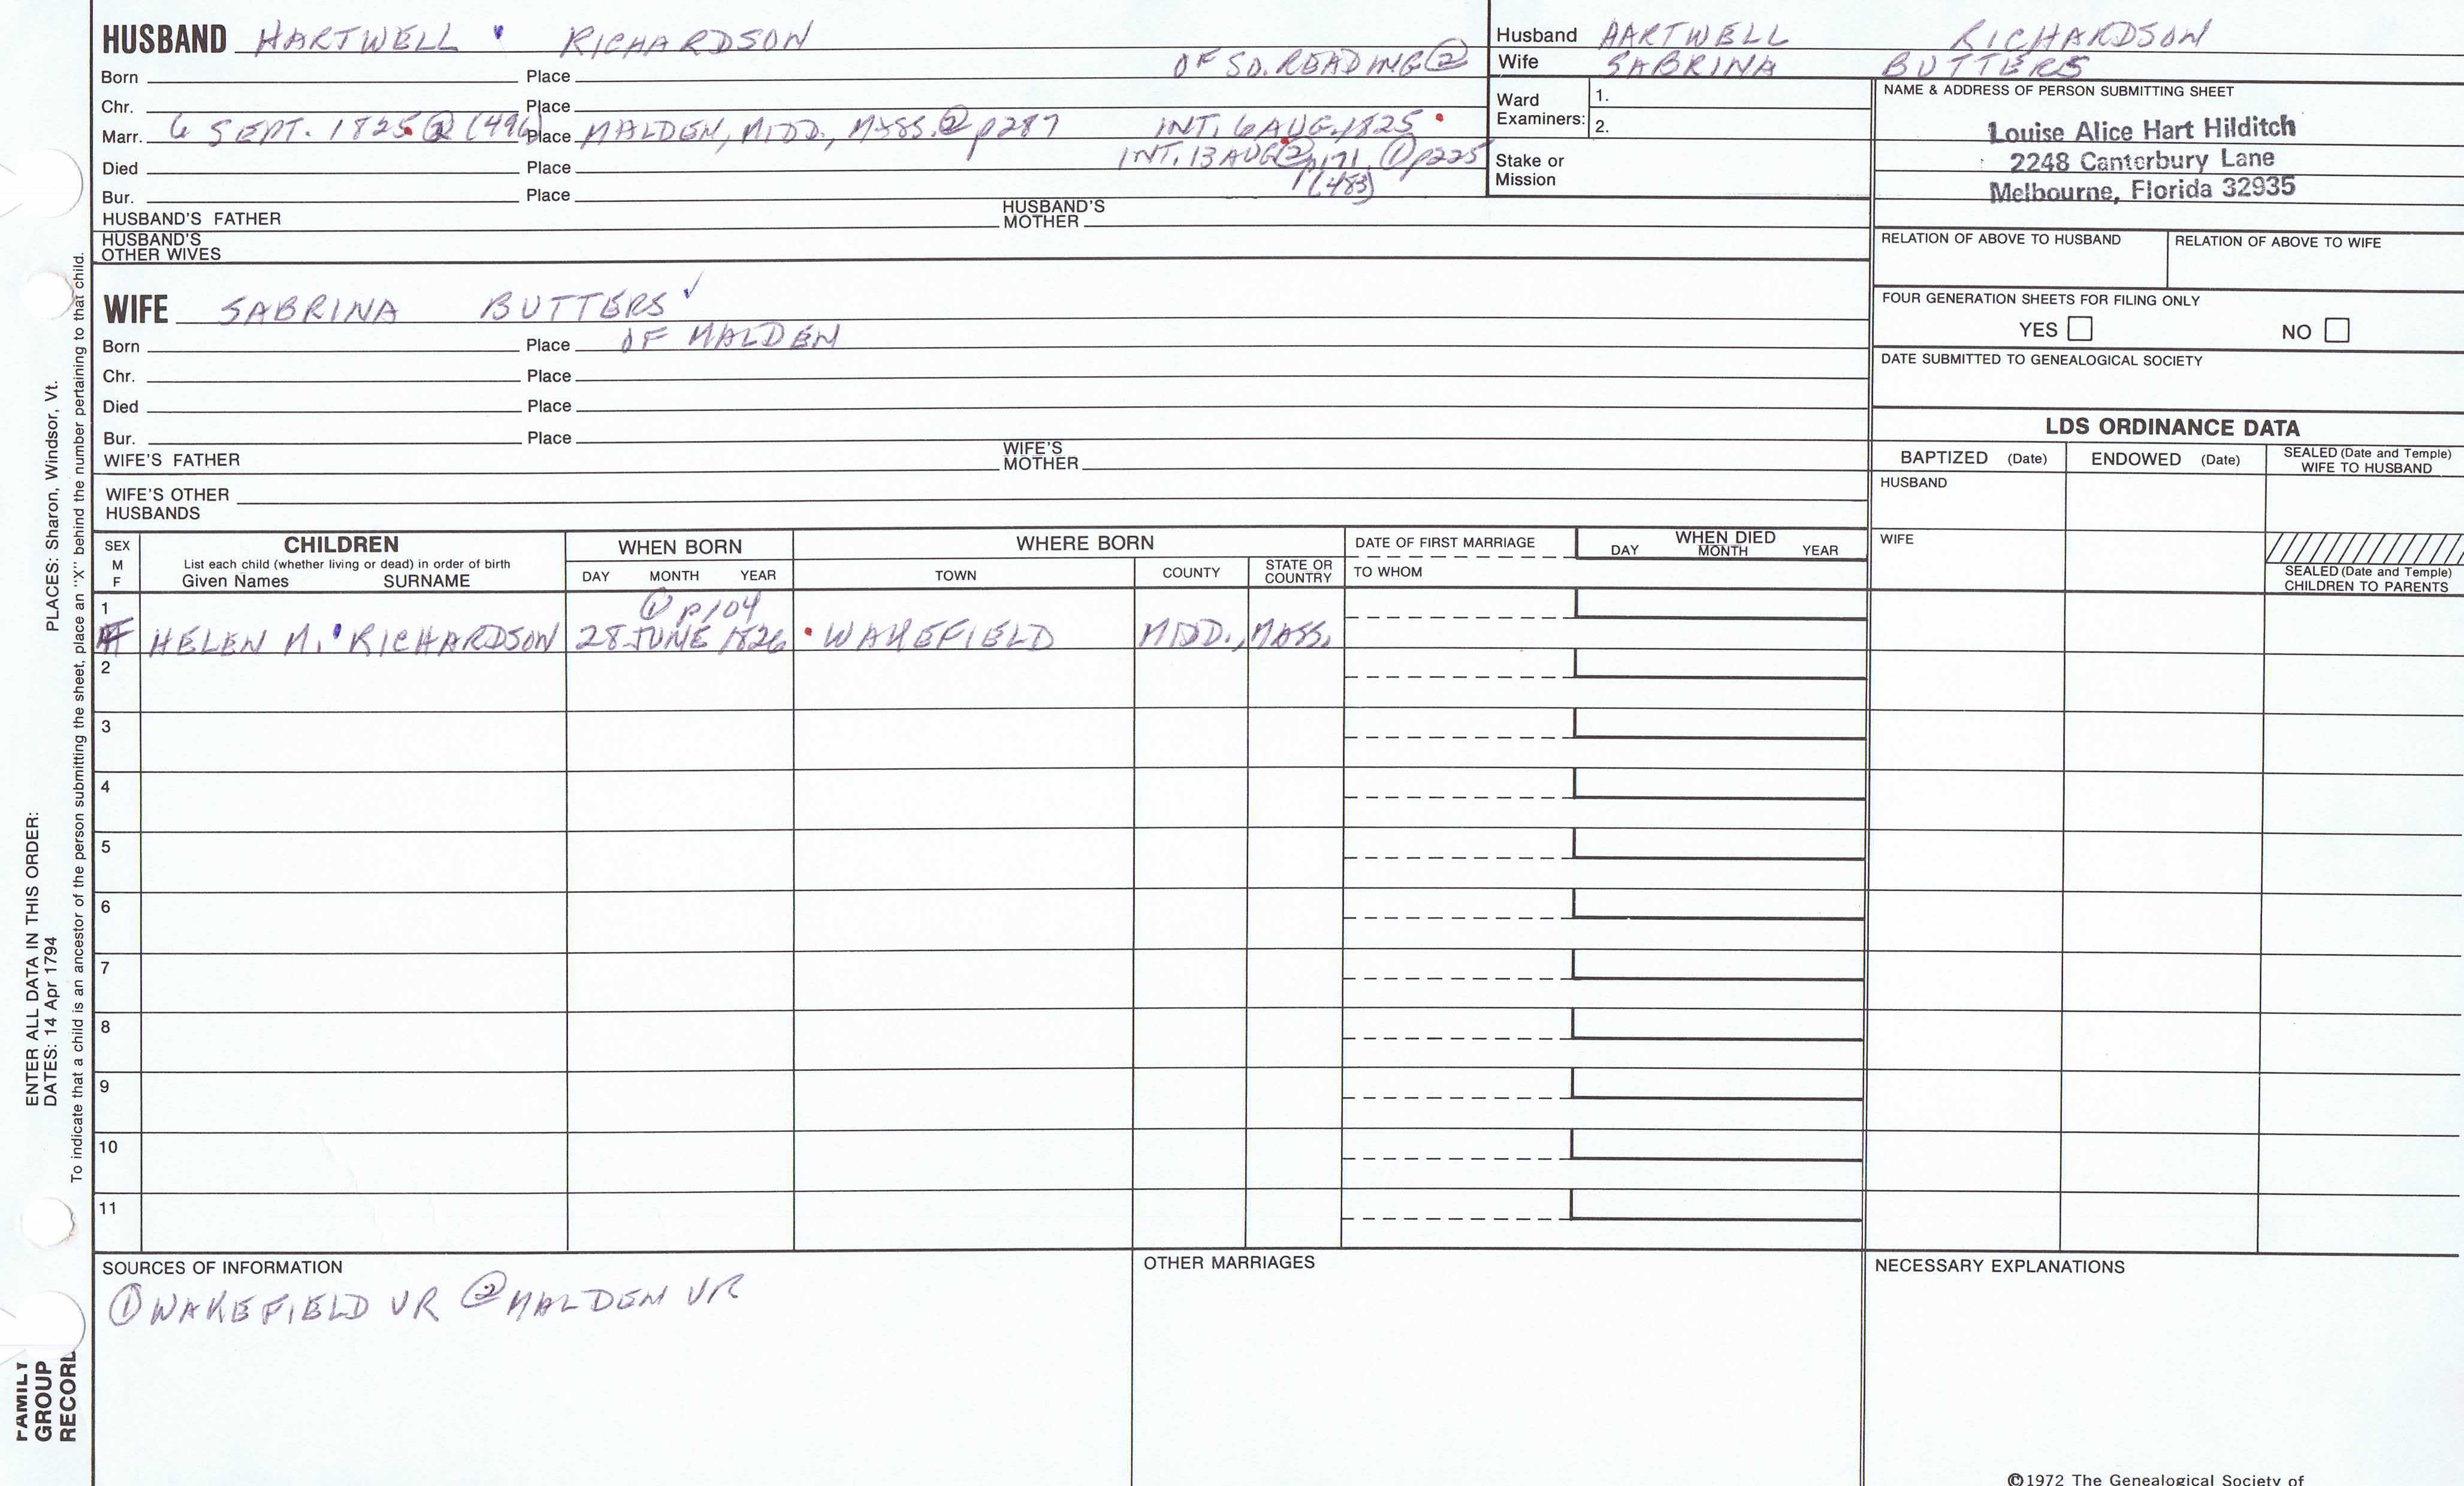 HUSBAND HARTWELL RICHARDSON
OF SO. READING ②
Born Place
Chr. Place
Marr. 6 SEPT. 1825 ② (496) Place MALDEN, MIDD., MASS. ② p287 INT. 6 AUG. 1825
INT. 13 AUG ② p171 ① p225
(483)
Died Place
Bur. Place
HUSBAND'S FATHER HUSBAND'S MOTHER
HUSBAND'S OTHER WIVES
Husband HARTWELL RICHARDSON
Wife SABRINA BUTTERS
Ward Examiners: 1.
2.
Stake or Mission
NAME & ADDRESS OF PERSON SUBMITTING SHEET
Louise Alice Hart Hilditch
2248 Canterbury Lane
Melbourne, Florida 32935
RELATION OF ABOVE TO HUSBAND RELATION OF ABOVE TO WIFE
FOUR GENERATION SHEETS FOR FILING ONLY
YES NO
DATE SUBMITTED TO GENEALOGICAL SOCIETY
WIFE SABRINA BUTTERS ✓
Born Place OF MALDEN
Chr. Place
Died Place
Bur. Place
WIFE'S FATHER WIFE'S MOTHER
WIFE'S OTHER HUSBANDS
LDS ORDINANCE DATA
BAPTIZED (Date) ENDOWED (Date) SEALED (Date and Temple) WIFE TO HUSBAND
HUSBAND
WIFE
SEALED (Date and Temple) CHILDREN TO PARENTS
SEX M F
CHILDREN
List each child (whether living or dead) in order of birth
Given Names SURNAME
WHEN BORN
DAY MONTH YEAR
WHERE BORN
TOWN COUNTY STATE OR COUNTRY
DATE OF FIRST MARRIAGE
TO WHOM
WHEN DIED
DAY MONTH YEAR
1 ① p104
F HELEN M. RICHARDSON 28 JUNE 1826 WAKEFIELD MIDD., MASS.
2
3
4
5
6
7
8
9
10
11
SOURCES OF INFORMATION
① WAKEFIELD VR ② MALDEN VR
OTHER MARRIAGES
NECESSARY EXPLANATIONS
©1972 The Genealogical Society of
PLACES: Sharon, Windsor, Vt.
ENTER ALL DATA IN THIS ORDER:
DATES: 14 Apr 1794
To indicate that a child is an ancestor of the person submitting the sheet, place an "X" behind the number pertaining to that child.
FAMILY
GROUP
RECORD